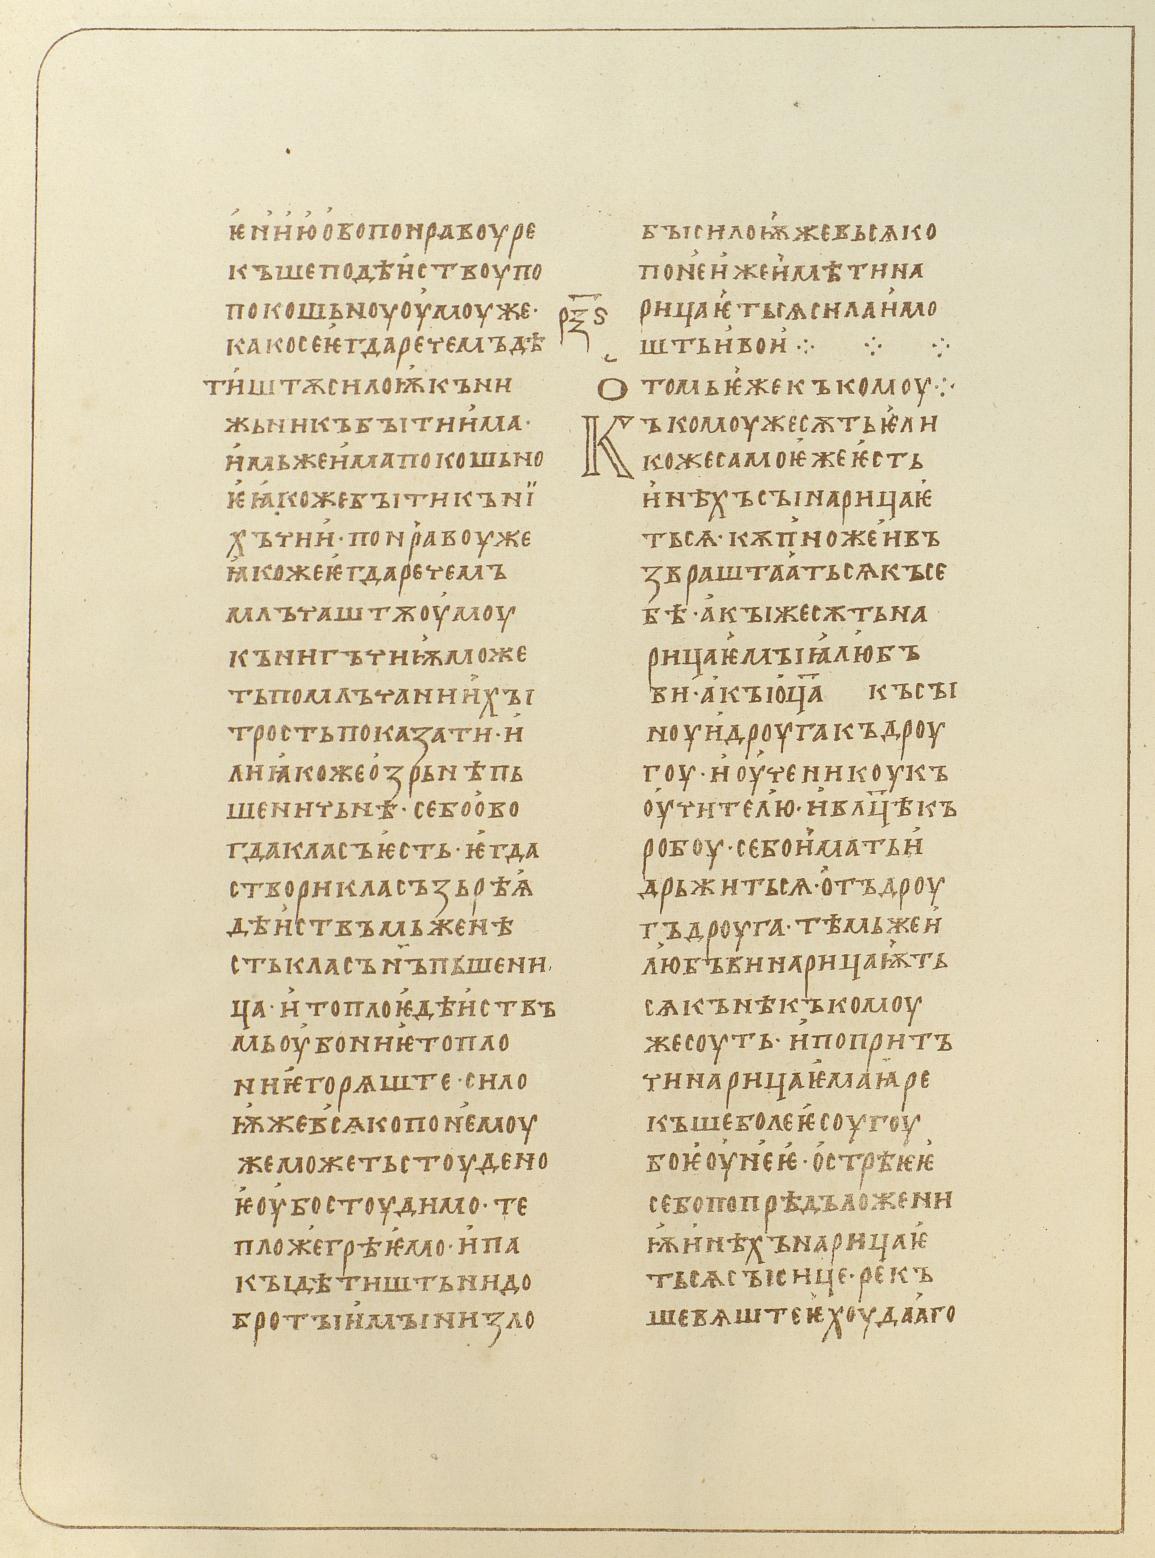 ѥниюобопонравоуре
къшеподѣиствоупо
покошьноуоумоуже·
какосеѥгдаречемъдѣ
тиштѫсилоѭкъни
жьникъбꙑтиима·
имьжеимапокошьно
ѥꙗкожебꙑтикънї
хъчии·понравоуже
ꙗкожеѥгдаречемъ
млъчаштѫоумоу
кънигъчиѭможе
тьпомлъчаниихꙑ
тростьпоказати·и
лиꙗкожеозрьнѣпь
шеничьнѣ·себоово
гдакласъѥсть·ѥгда
створикласъзьрѣѧ
дѣиствъмьженѣ
стькласънъпьшени
ца·итоплоѥдѣиствъ
мьоубониѥтопло
ниѥгорѧште·сило
ѭжевсѧкопонемоу
жеможетьстоудено
ѥоубостоудимо·те
ложегрѣѥмо·ипа
кꙑдѣтиштьнидо
бротꙑимꙑнизло
бꙑсилоѭжевьсѧко
понеижеимѣтина
рицаѥтьсѧсилаимо
рѯѕ
штьивои
отомьѥжекъкомоу
Къкомоужесѫтьѥли
кожесамоѥжеѥсть
инѣхъсꙑнарицаѥ
тьсѧ·кѫпножеивъ
звраштаатьсѧкъсе
бѣ·акꙑжесѫтьна
рицаѥмꙑꙗлюбъ
ви·акꙑоца късꙑ
ноуидроугакъдроу
гоу·иоученикоукъ
оучителю·ивлцѣкъ
робоу·себоиматьи
дрьжитьсѧ·отъдроу
гъдроуга·тѣмьжеи
любъвинарицаѭть
сѧкънѣкъкомоу
жесоуть·ипопритъ
чинарицаѥмаꙗре
къшеболеѥсоугоу
боѥоунеѥ·острѣѥѥ
себопопрѣдъложени
ѭинѣхънарицаѥ
тьсѧсꙑсице·рекъ
шевѧштеѥхоудааго